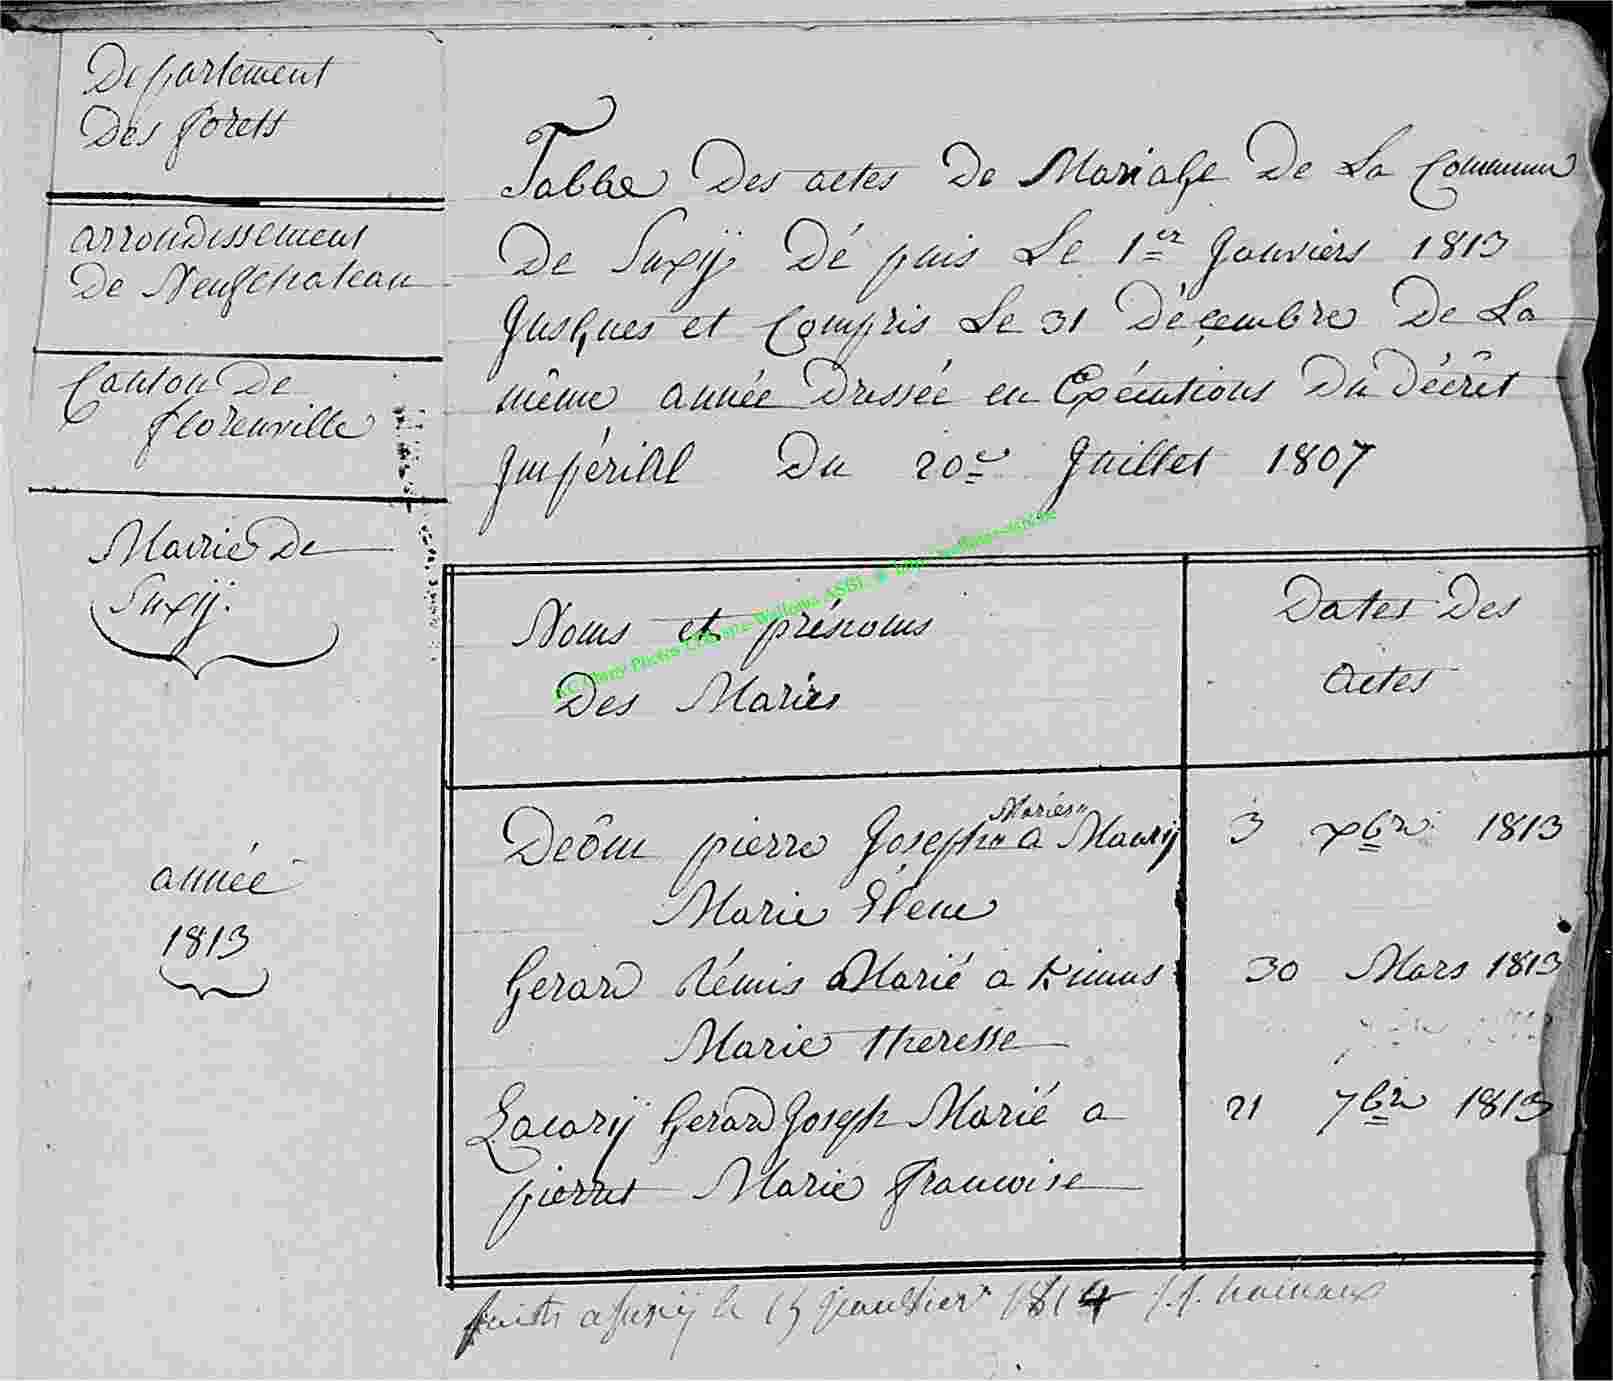 Departement
Des forets
arrondissement
de Neufchateau
Canton De
florenville
Mairie de
Suxÿ.
année
1813
Table Des actes De Mariage De La Commune
De Suxÿ Dépuis Le 1er Janviers 1813
Jusques et Compris Le 31 Décembre De La
même année Dressée en Exécutions Du Décrêt
Impérial Du 20e Juillet 1807
Noms et prénoms
Des Mariés
Dates Des
Actes
Deôm pierre Joseph Mariés a Maurÿ 3 xbre 1813
Marie Elene
Gerard Rémis Marié a 30 Mars 1813
Marie theresse
Lacarÿ Gerard Joseph Marié a 21 7bre 1813
pierret Marie francoise
fait a Suxÿ le 15 janvier 1814